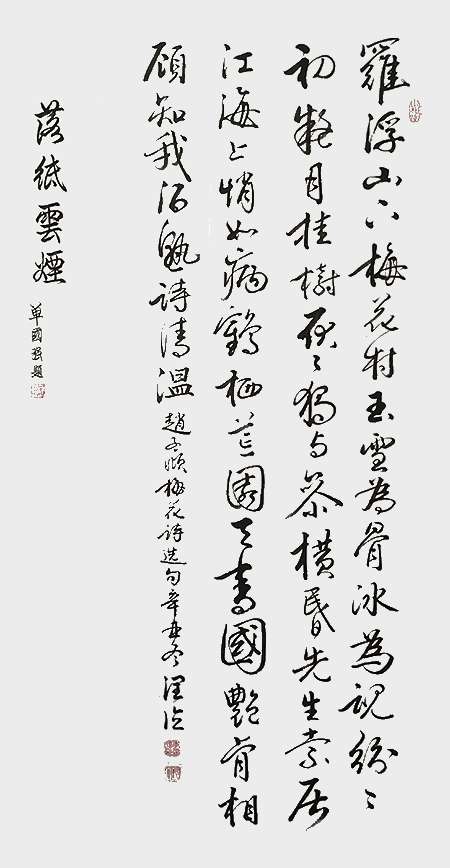 羅浮山下梅花村玉雪為骨冰為魂紛〻
初疑月挂樹耿〻獨与參橫昏先生索居
江海上悄如病鶴栖荒園天香國艷肯相
顧知我酒熟詩清溫
趙孟頫梅花詩選句辛丑冬
落紙雲煙
單國強題